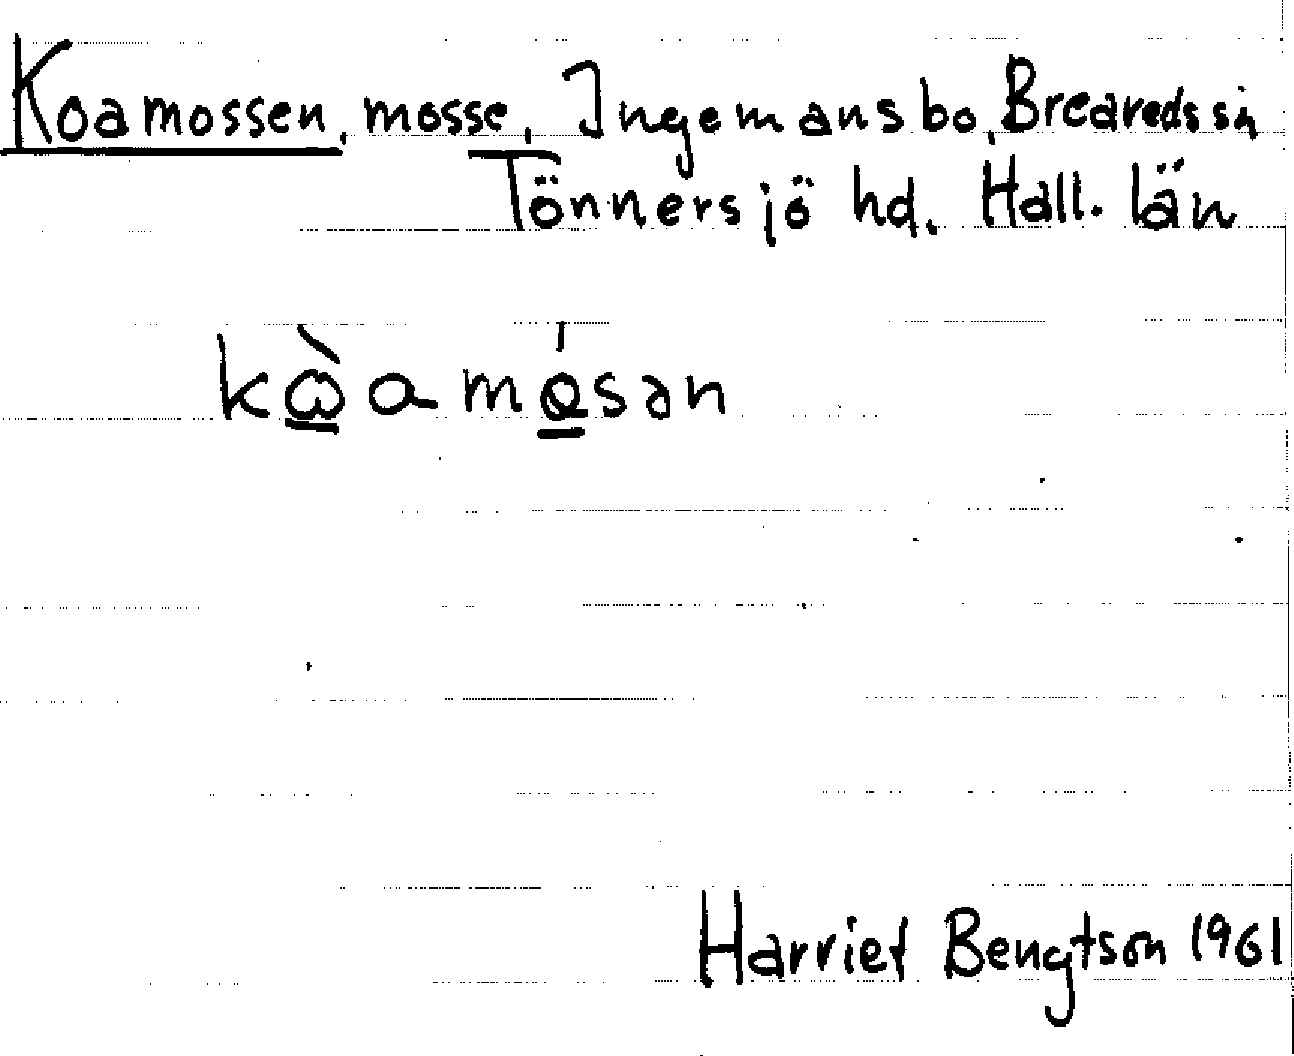 Koamossen, mosse, Ingemansbo, Breareds sn
Tönnersjö hd. Hall. län
kὼ̲amó̲sən
Harriet Bengtson 1961